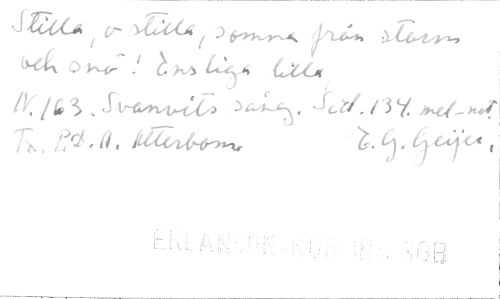 Stilla, o stilla, somna från storm
och snö! Ensliga lilla
N. 163. Svanvits sång. Sid. 134. mel-not.
Tx. P.D.A. Atterbom. E. G. Geijer.